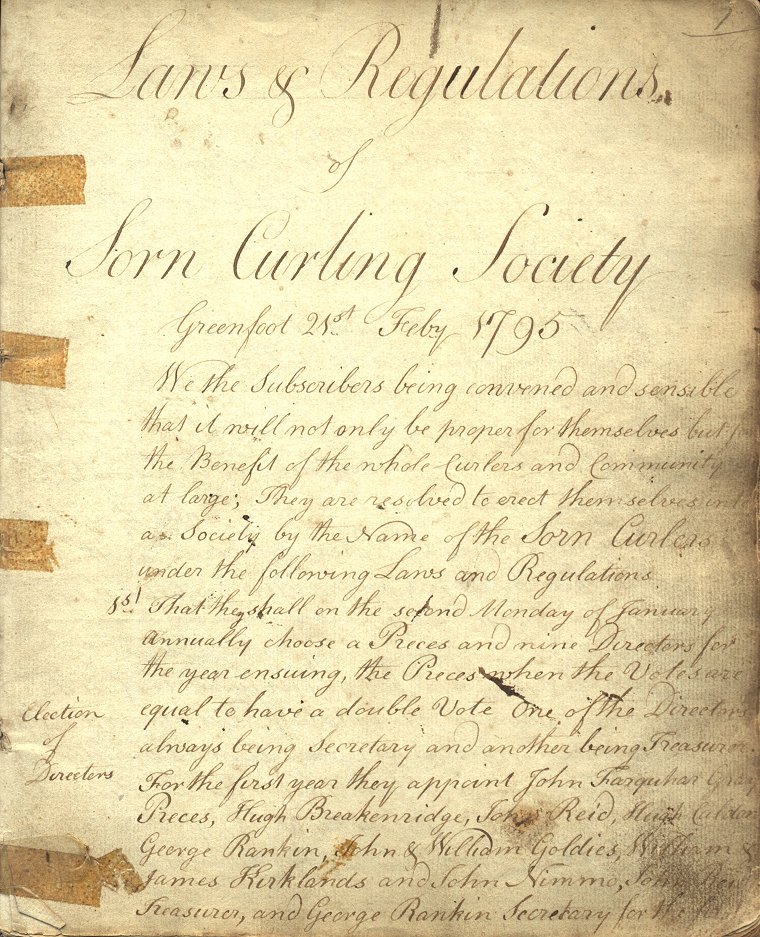 1
Laws & Regulations
of
Sorn Curling Society
Greenfoot 21st Feby 1795
We the Subscribers being convened and sensible
that it will not only be proper for themselves but for
the Benefit of the whole Curlers and Community
at large; They are resolved to erect themselves in
a Society by the Name of the Sorn Curlers
under the following Laws and Regulations
1st That they shall on the second Monday of January
annually choose a Preces and nine Directors for
the year ensuing, the Preces when the Votes are
equal to have a double Vote One of the Directors
always being Secretary and another being Treasurer.
Election
of
Directors
For the first year they appoint John Farquhar Gray
Preces, Hugh Breakenridge, John Reid, Hugh
George Rankin, John & William Goldies, William &
James Kirklands and John Nimmo, John
Treasurer, and George Rankin Secretary for the